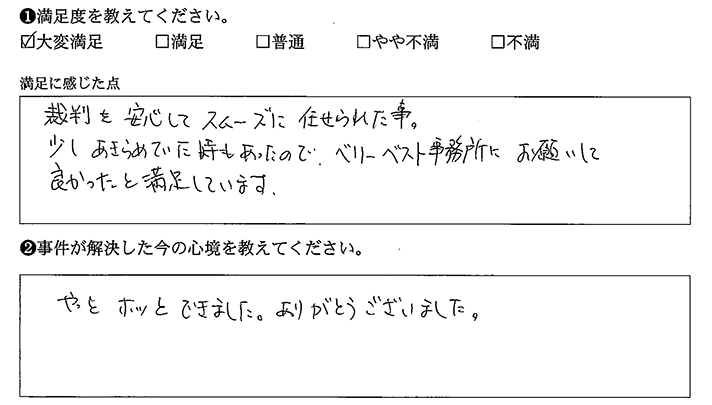 ❶満足度を教えてください。
☑大変満足 □満足 □普通 □やや不満 □不満
満足に感じた点
裁判を安心してスムーズに任せられた事。
少しあきらめていた時もあったので、ベリーベスト事務所にお願いして
良かったと満足しています。
❷事件が解決した今の心境を教えてください。
やっとホッとできました。ありがとうございました。